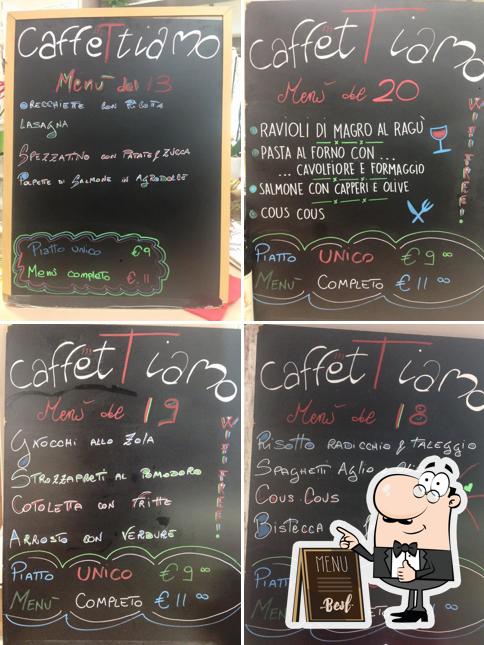 CaffeTtiamo
Menù del 13
Orecchiette con Ricotta
Lasagna
Spezzatino con Patate & Zucca
Polpette di Salmone in Agrodolce
Piatto unico €9
Menù completo €.11
CaffetTiamo
Menù del 20
WIFI FREE!
RAVIOLI DI MAGRO AL RAGÙ
PASTA AL FORNO CON ...
... CAVOLFIORE E FORMAGGIO
SALMONE CON CAPPERI E OLIVE
COUS COUS
PIATTO UNICO €9 00
MENU COMPLETO €11 00
CaffetTiamo
Menù del 19
WIFI FREE!
GNOCCHI ALLO ZOLA
STROZZAPRETI AL POMODORO
COTOLETTA CON FRITTE
ARROSTO CON VERDURE
PIATTO UNICO €9 00
MENU COMPLETO €11 00
CaffetTiamo
Menù del 18
RISOTTO RADICCHIO & TALEGGIO
SPAGHETTI AGLIO
COUS COUS
BISTECCA
MENU
Best